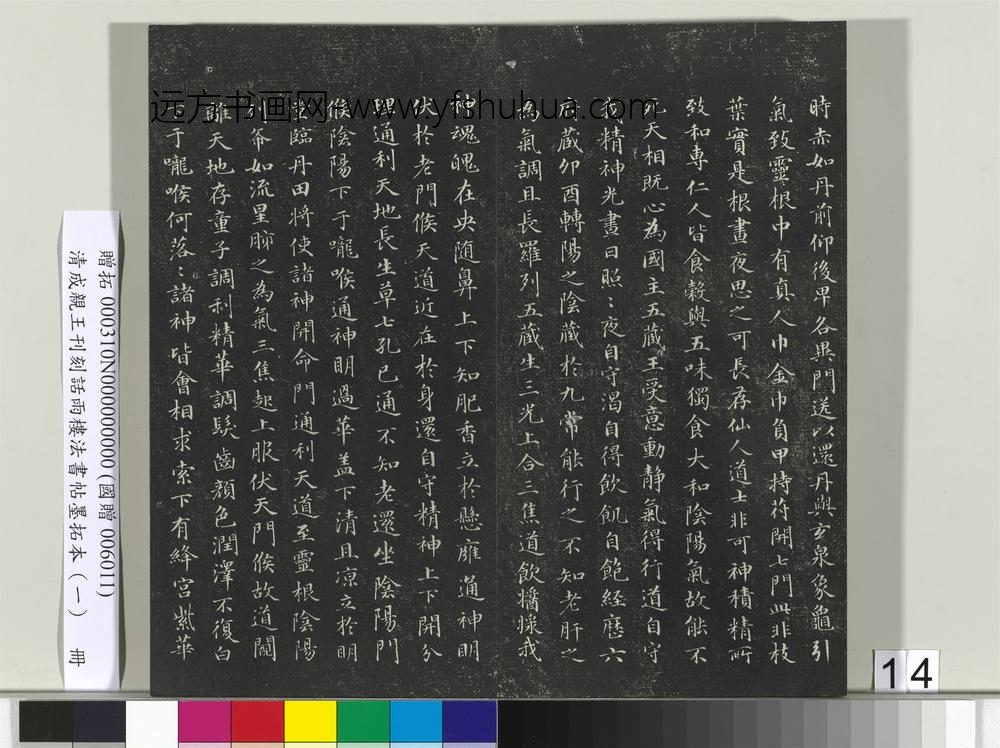 時赤如丹前仰後卑各異門送以還丹與玄泉象龜引
氣致靈根中有真人巾金巾負甲持符開七門此非枝
葉實是根晝夜思之可長存仙人道士非可神積精所
致和專仁人皆食穀與五味獨食大和陰陽氣故能不
死天相既心為國主五藏王受意動靜氣得行道自守
我精神光晝日照〻夜自守渴自得飲飢自飽經歷六
府藏卯酉轉陽之陰藏於九常能行之不知老肝之
為氣調且長羅列五藏生三光上合三焦道飲醬漿我
神魂魄在央随鼻上下知肥香立於懸癰通神明
伏於老門候天道近在於身還自守精神上下開分
理通利天地長生草七孔已通不知老還坐陰陽門
候陰陽下于嚨喉通神明過華盖下清且凉立於明
堂臨丹田將使諸神開命門通利天道至靈根陰陽
列布如流星肺之為氣三焦起上服伏天門候故道闚
離天地存童子調利精華調髮齒顏色潤澤不復白
下于嚨喉何落〻諸神皆會相求索下有絳宮紫華
远方书画网 www.yfshuhua.com
贈拓 000310N000000000 (國贈 006011)
清成親王刊刻話雨樓法書帖墨拓本(一) 冊
14